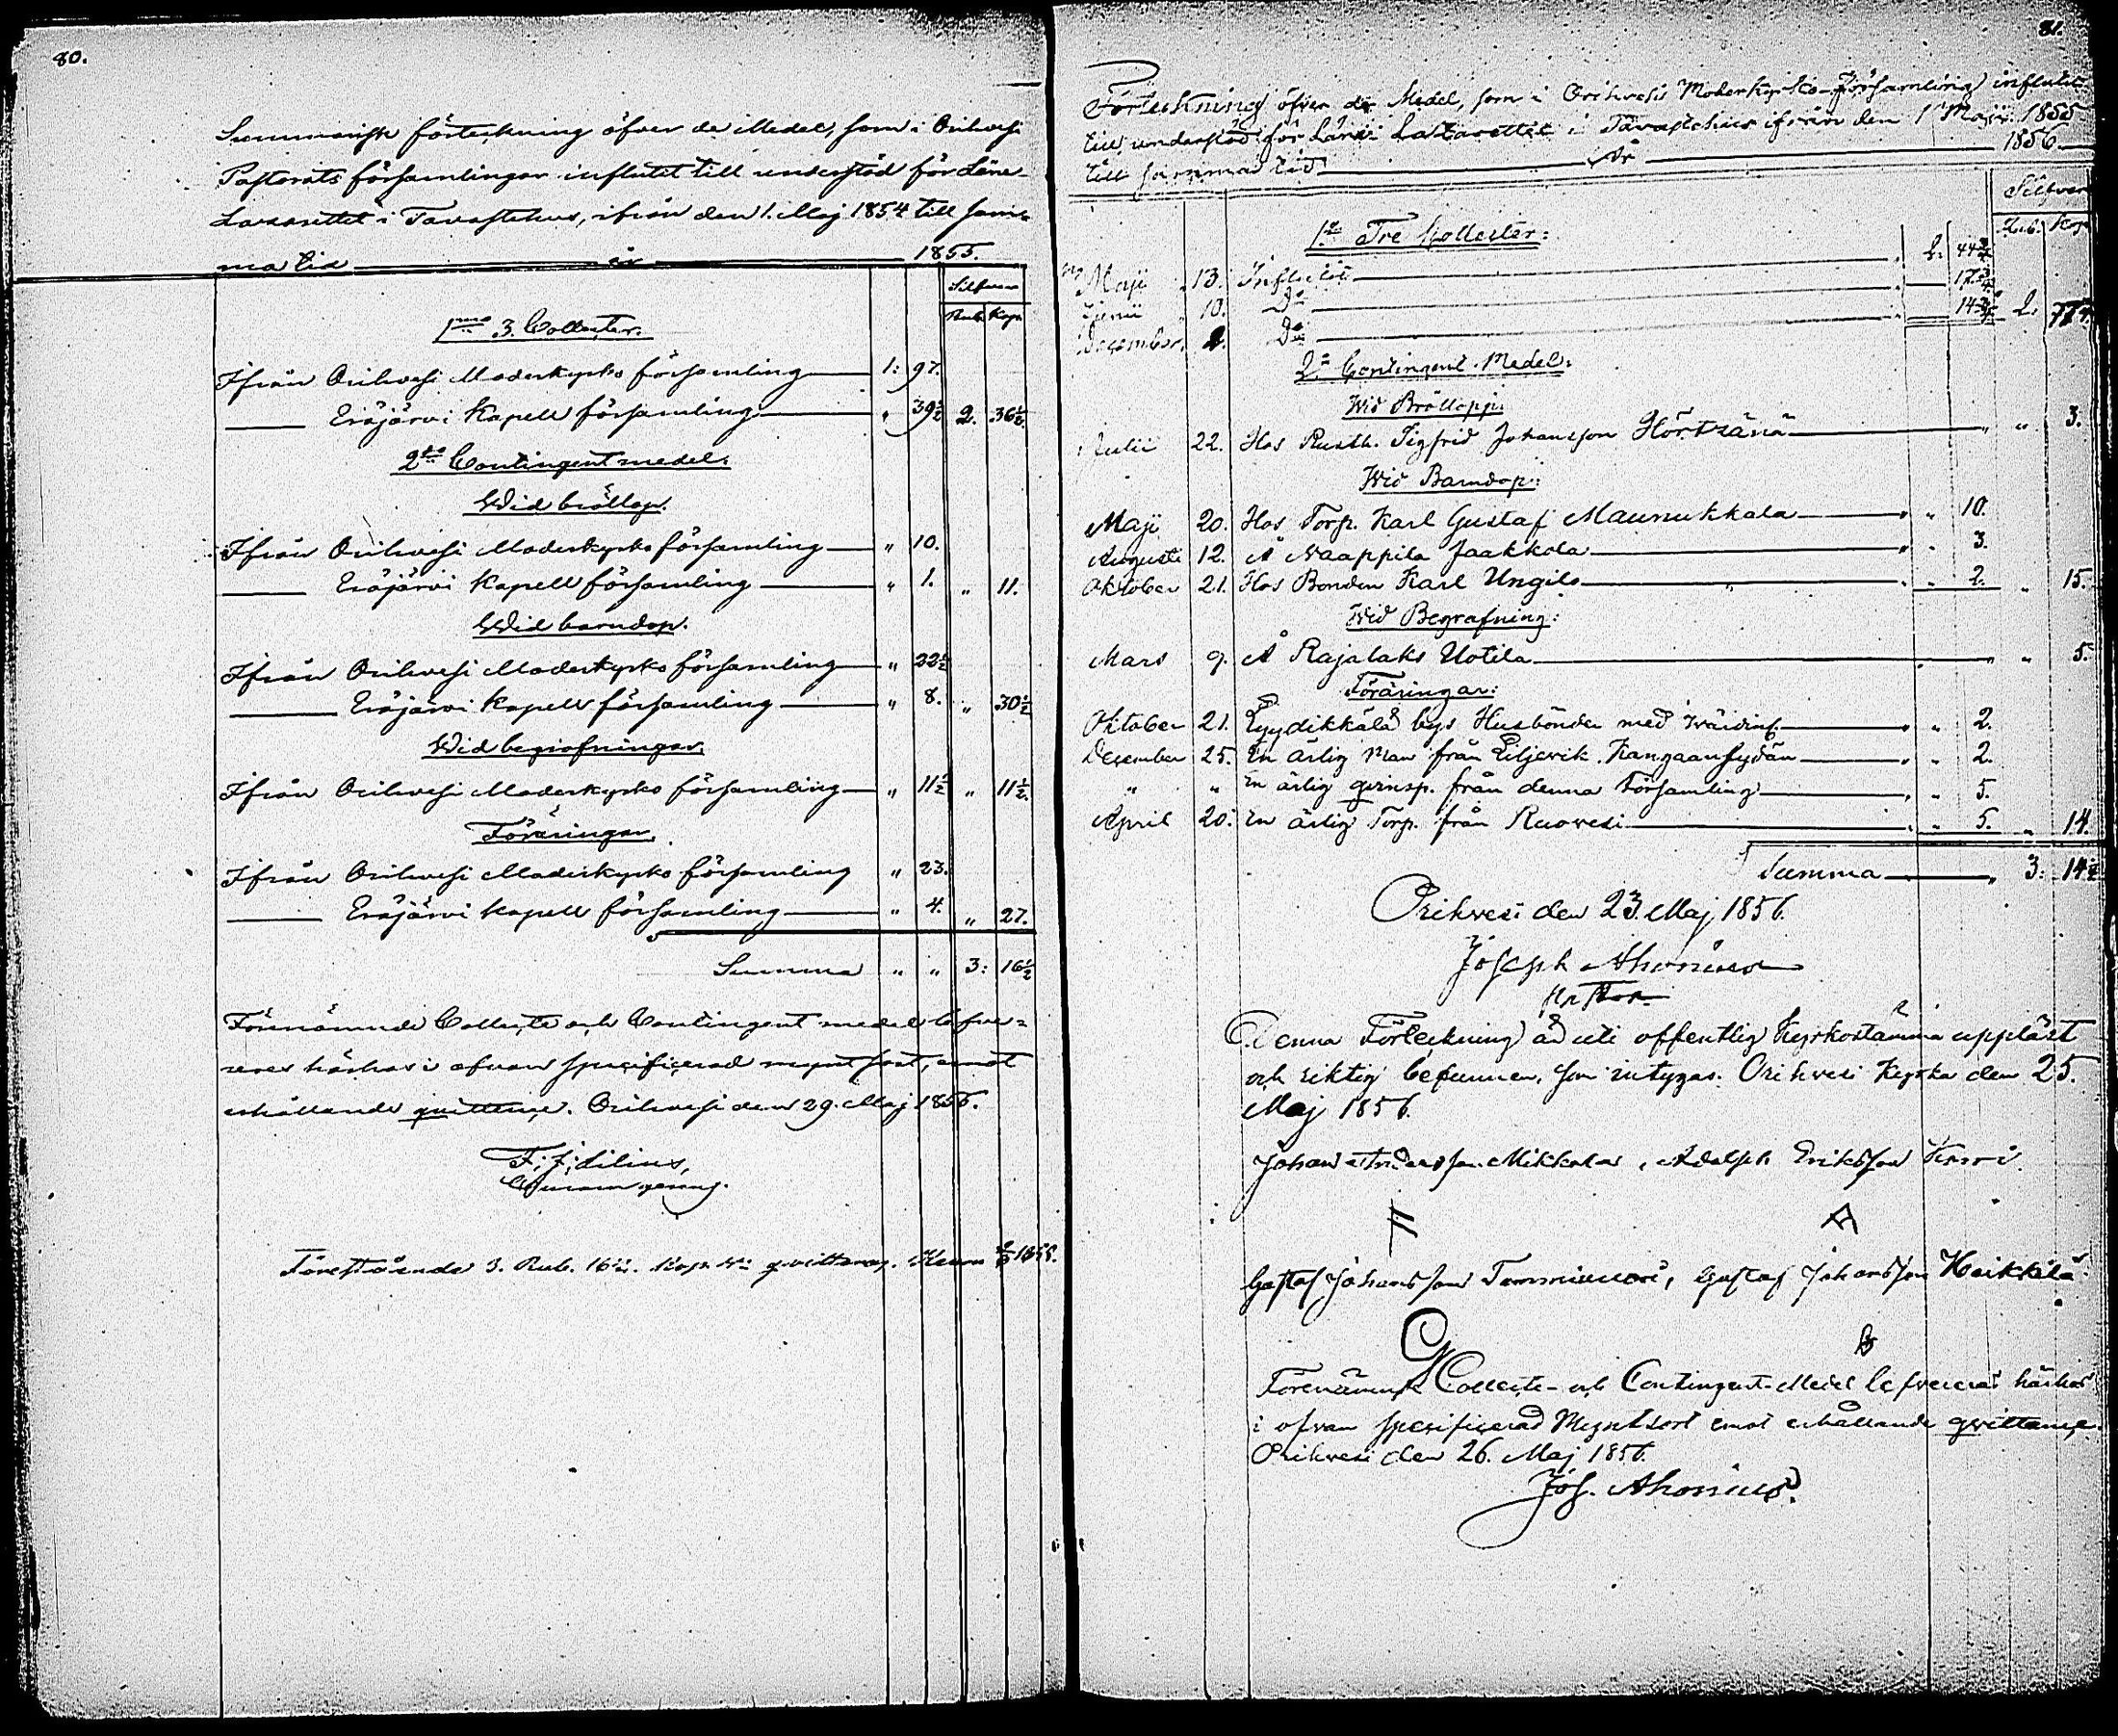 80.
Summarisk förteckning öfver de Medel, som i Orihvesi
Pastorats församlingar influtit till understöd för Läns
Lazarettet i Tavastehus, ifrån den 1. Maj 1854 till sam-
ma tid år 1855.
Silfver
Rub. Kop.
1mo 3. Collecter.
Ifrån Orihvesi Moderkyrko församling 1: 97.
Eräjärvi Kapell församling " 39½ 2. 36½.
2do Contingent medel.
Wid bröllop.
Ifrån Orihvesi Moderkyrko församling " 10.
Eräjärvi Kapell församling " 1. " 11.
Wid barndop.
Ifrån Orihvesi Moderkyrko församling " 22½
Eräjärvi Kapell församling " 8. " 30½
Wid begrafningar.
Ifrån Orihvesi Moderkyrko församling " 11½ " 11½.
Föräringar.
Ifrån Orihvesi Moderkyrko församling " 23.
Eräjärvi Kapell församling " 4. " 27.
Summa " " 3: 16½
Förenämnde Collecte och Contingent medel lefve-
reras härhos i ofvan specificerad mynt sort, emot
erhållande qvittence. Orihvesi den 29. Maj 1855.
F. J. Lilius,
Förestående 3. Rub. 16½. Kop. Sr qvitteras.
81.
Förteckning öfver de Medel, som i Orihvesi Moderkyrko Församling influtit
till understöd för Läns Lazarettet i Tavastehus ifrån den 1 Maji 1855
till samma tid år 1856
Silfver
Rub. Kop.
1o Tre Kollecter:
Maji 13. Influtit 2. 44¾
Junii 10. Do 17¾
December 2. Do 14¾ 2. 77¼.
2o Contingent-Medel:
Wid Bröllopp:
Julii 22. Hos Rusth. Sigfrid Johansson Hörtsänä " " 3.
Wid Barndop:
Maji 20. Hos Torp. Karl Gustaf Maunukkala " " 10.
Augusti 12. Å Naappila Jaakkola " " 3.
Oktober 21. Hos Bonden Karl Ungilo " " 2. " 15.
Wid Begrafning:
Mars 9. Å Rajalaks Uotila " " 5.
Föräringar:
Oktober 21. Lyydikkälä bys Husbönder med wärdinf. " " 2.
December 25. En ärlig Man från Liljevik. Kangaansydän " " 2.
" " En ärlig qvinsp. från denna Församling " " 5.
April 20. En ärlig Torp. från Ruovesi " " 5. " 14.
Summa " 3: 14¼
Orihvesi den 23. Maj 1856.
Joseph Ahonius
Denna Förteckning är uti offentlig Kyrkostämma uppläst
och riktig befunnen, som intygas. Orihvesi Kyrka den 25.
Maj 1856.
Johan Andersson Mikkola, Adolph Eriksson
Gustaf Johansson Tamminiemi, Gustaf Johansson Heikkilä
Förenämnde Collecte- och Contingent-Medel lefvereras härhos
i ofvan specificerad Myntsort emot erhållande qvittance.
Orihvesi den 26. Maj 1856.
Jos. Ahonius.